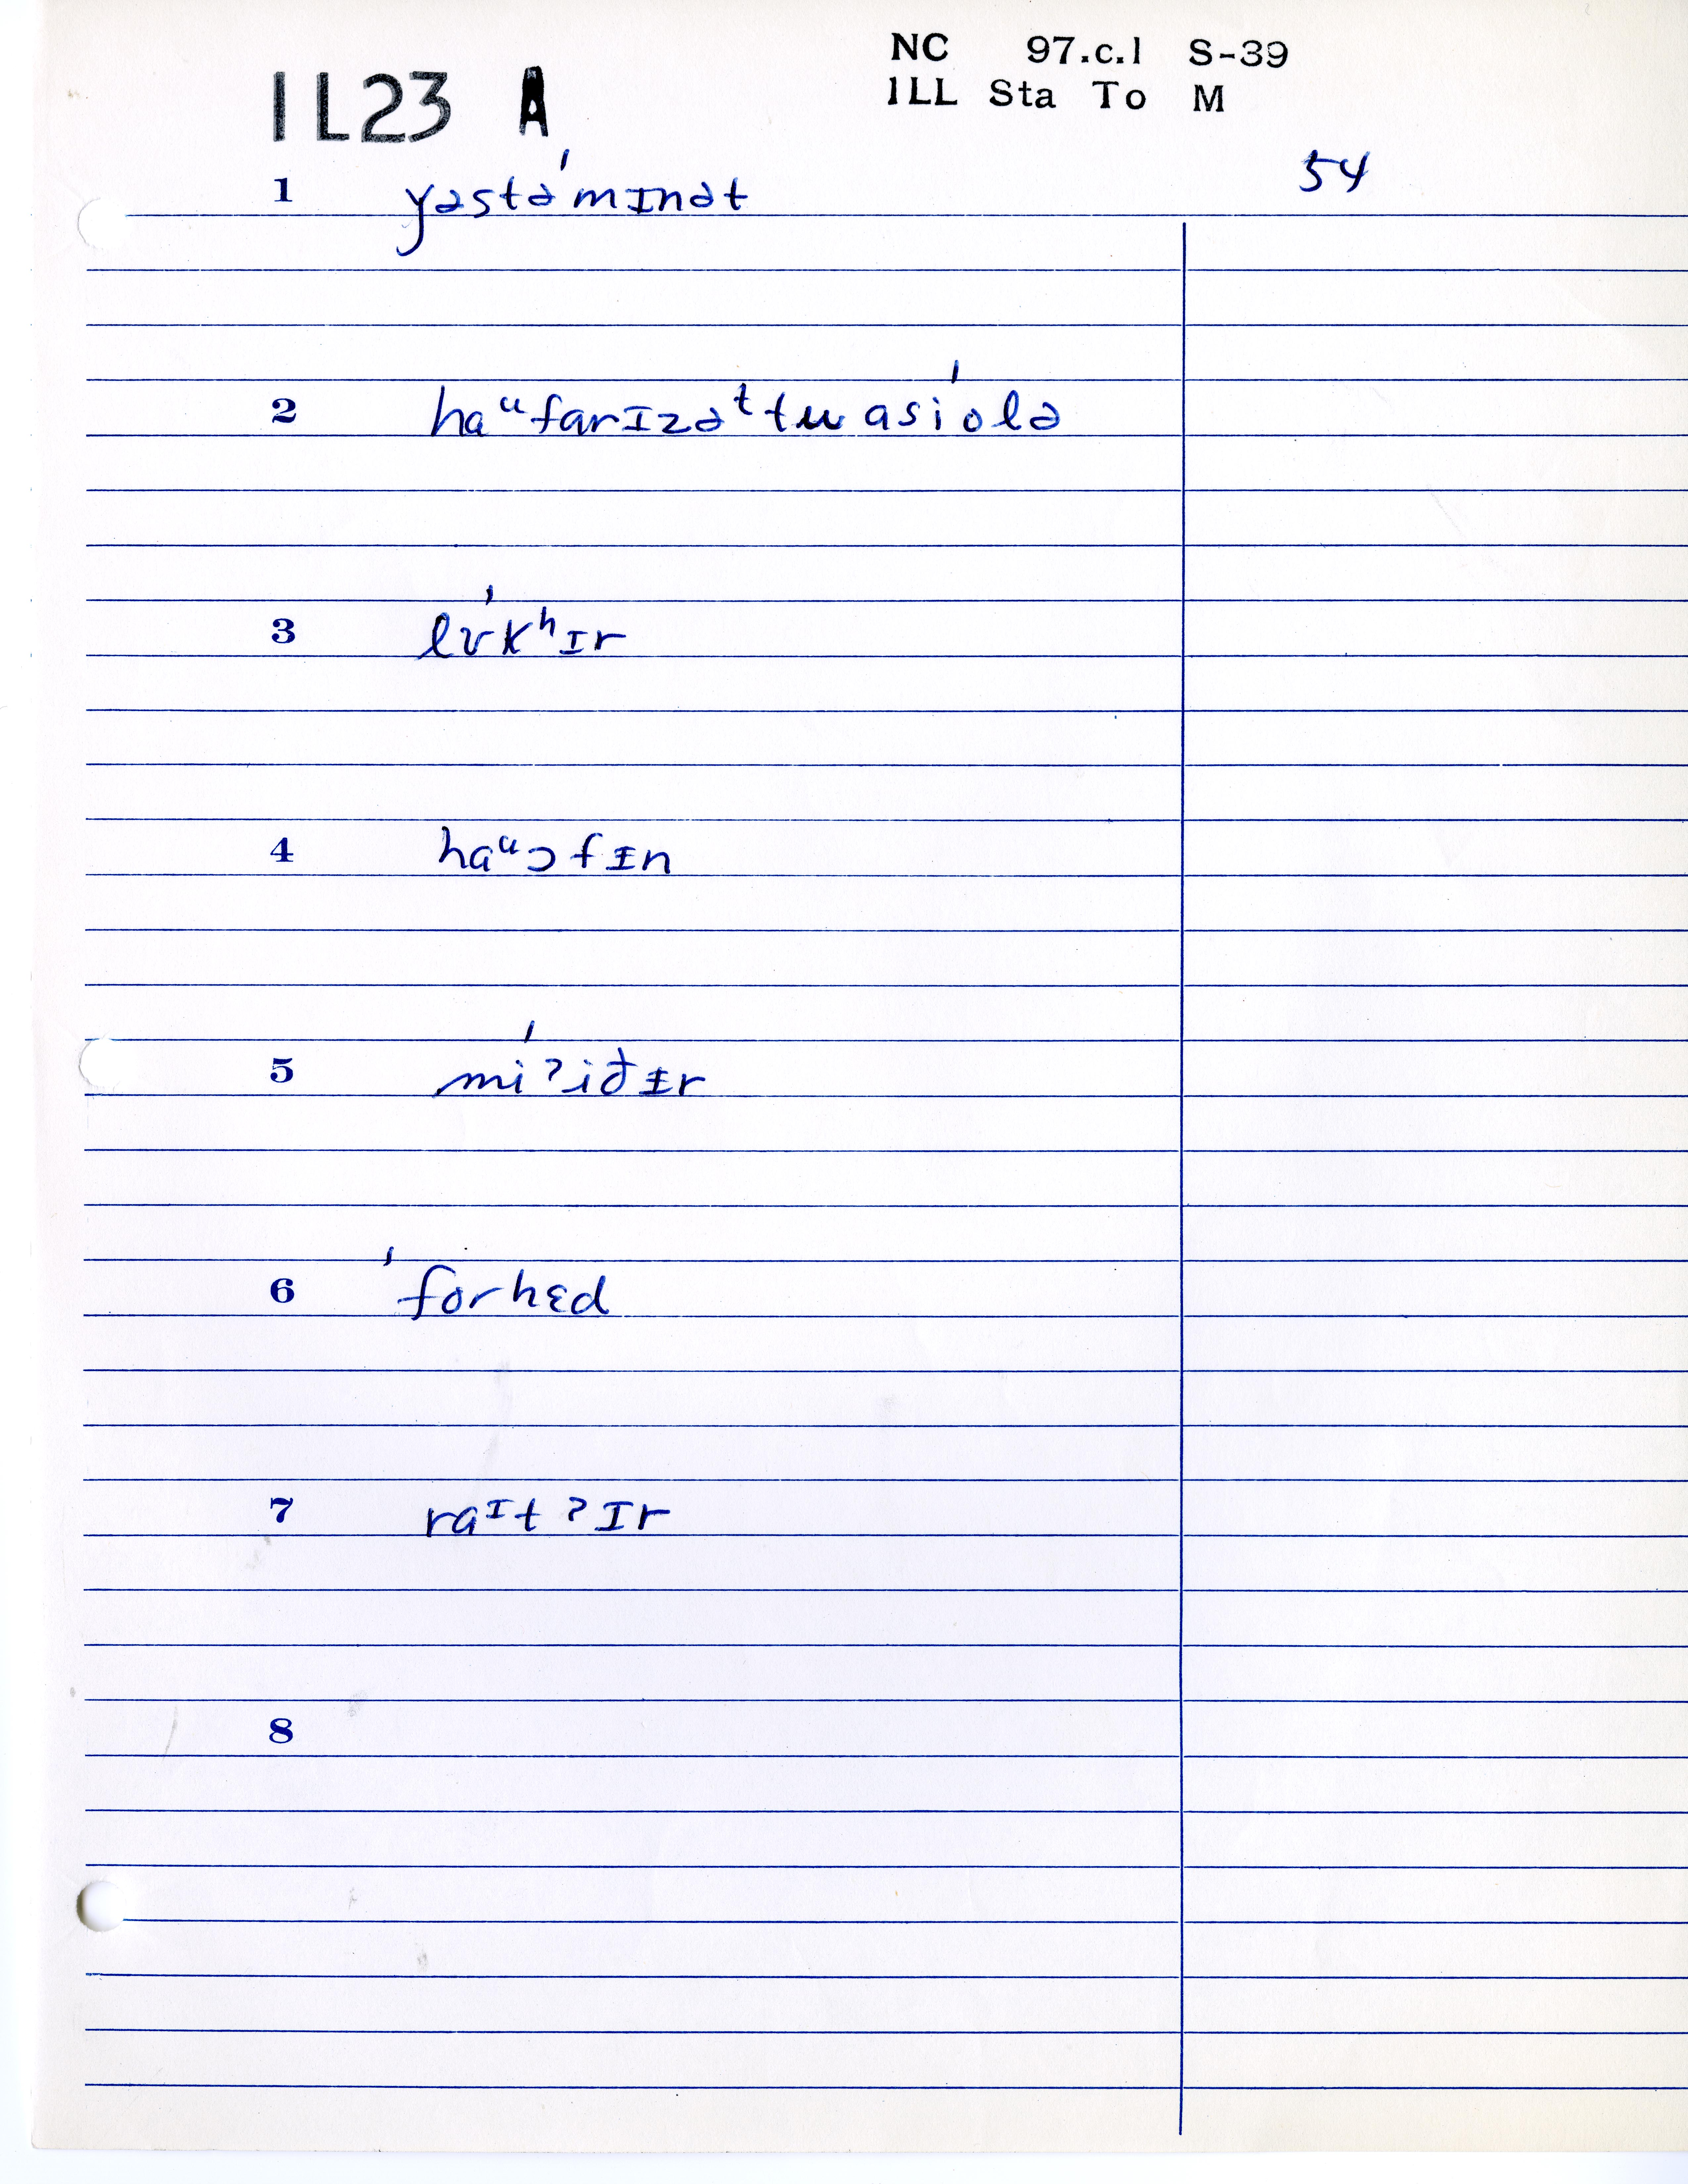 NC 97.c.1 S-39
1L23 A ILL Sta To M
54
1 yəstə́mɪnət
2 haᵘfarɪzəᵗtʉ asíolə
3 lʊ́kʰɪr
4 haᵘɔfɪn
5 míʔiđɪr
6 ˈforhɛd
7 raᶦtʔɪr
8